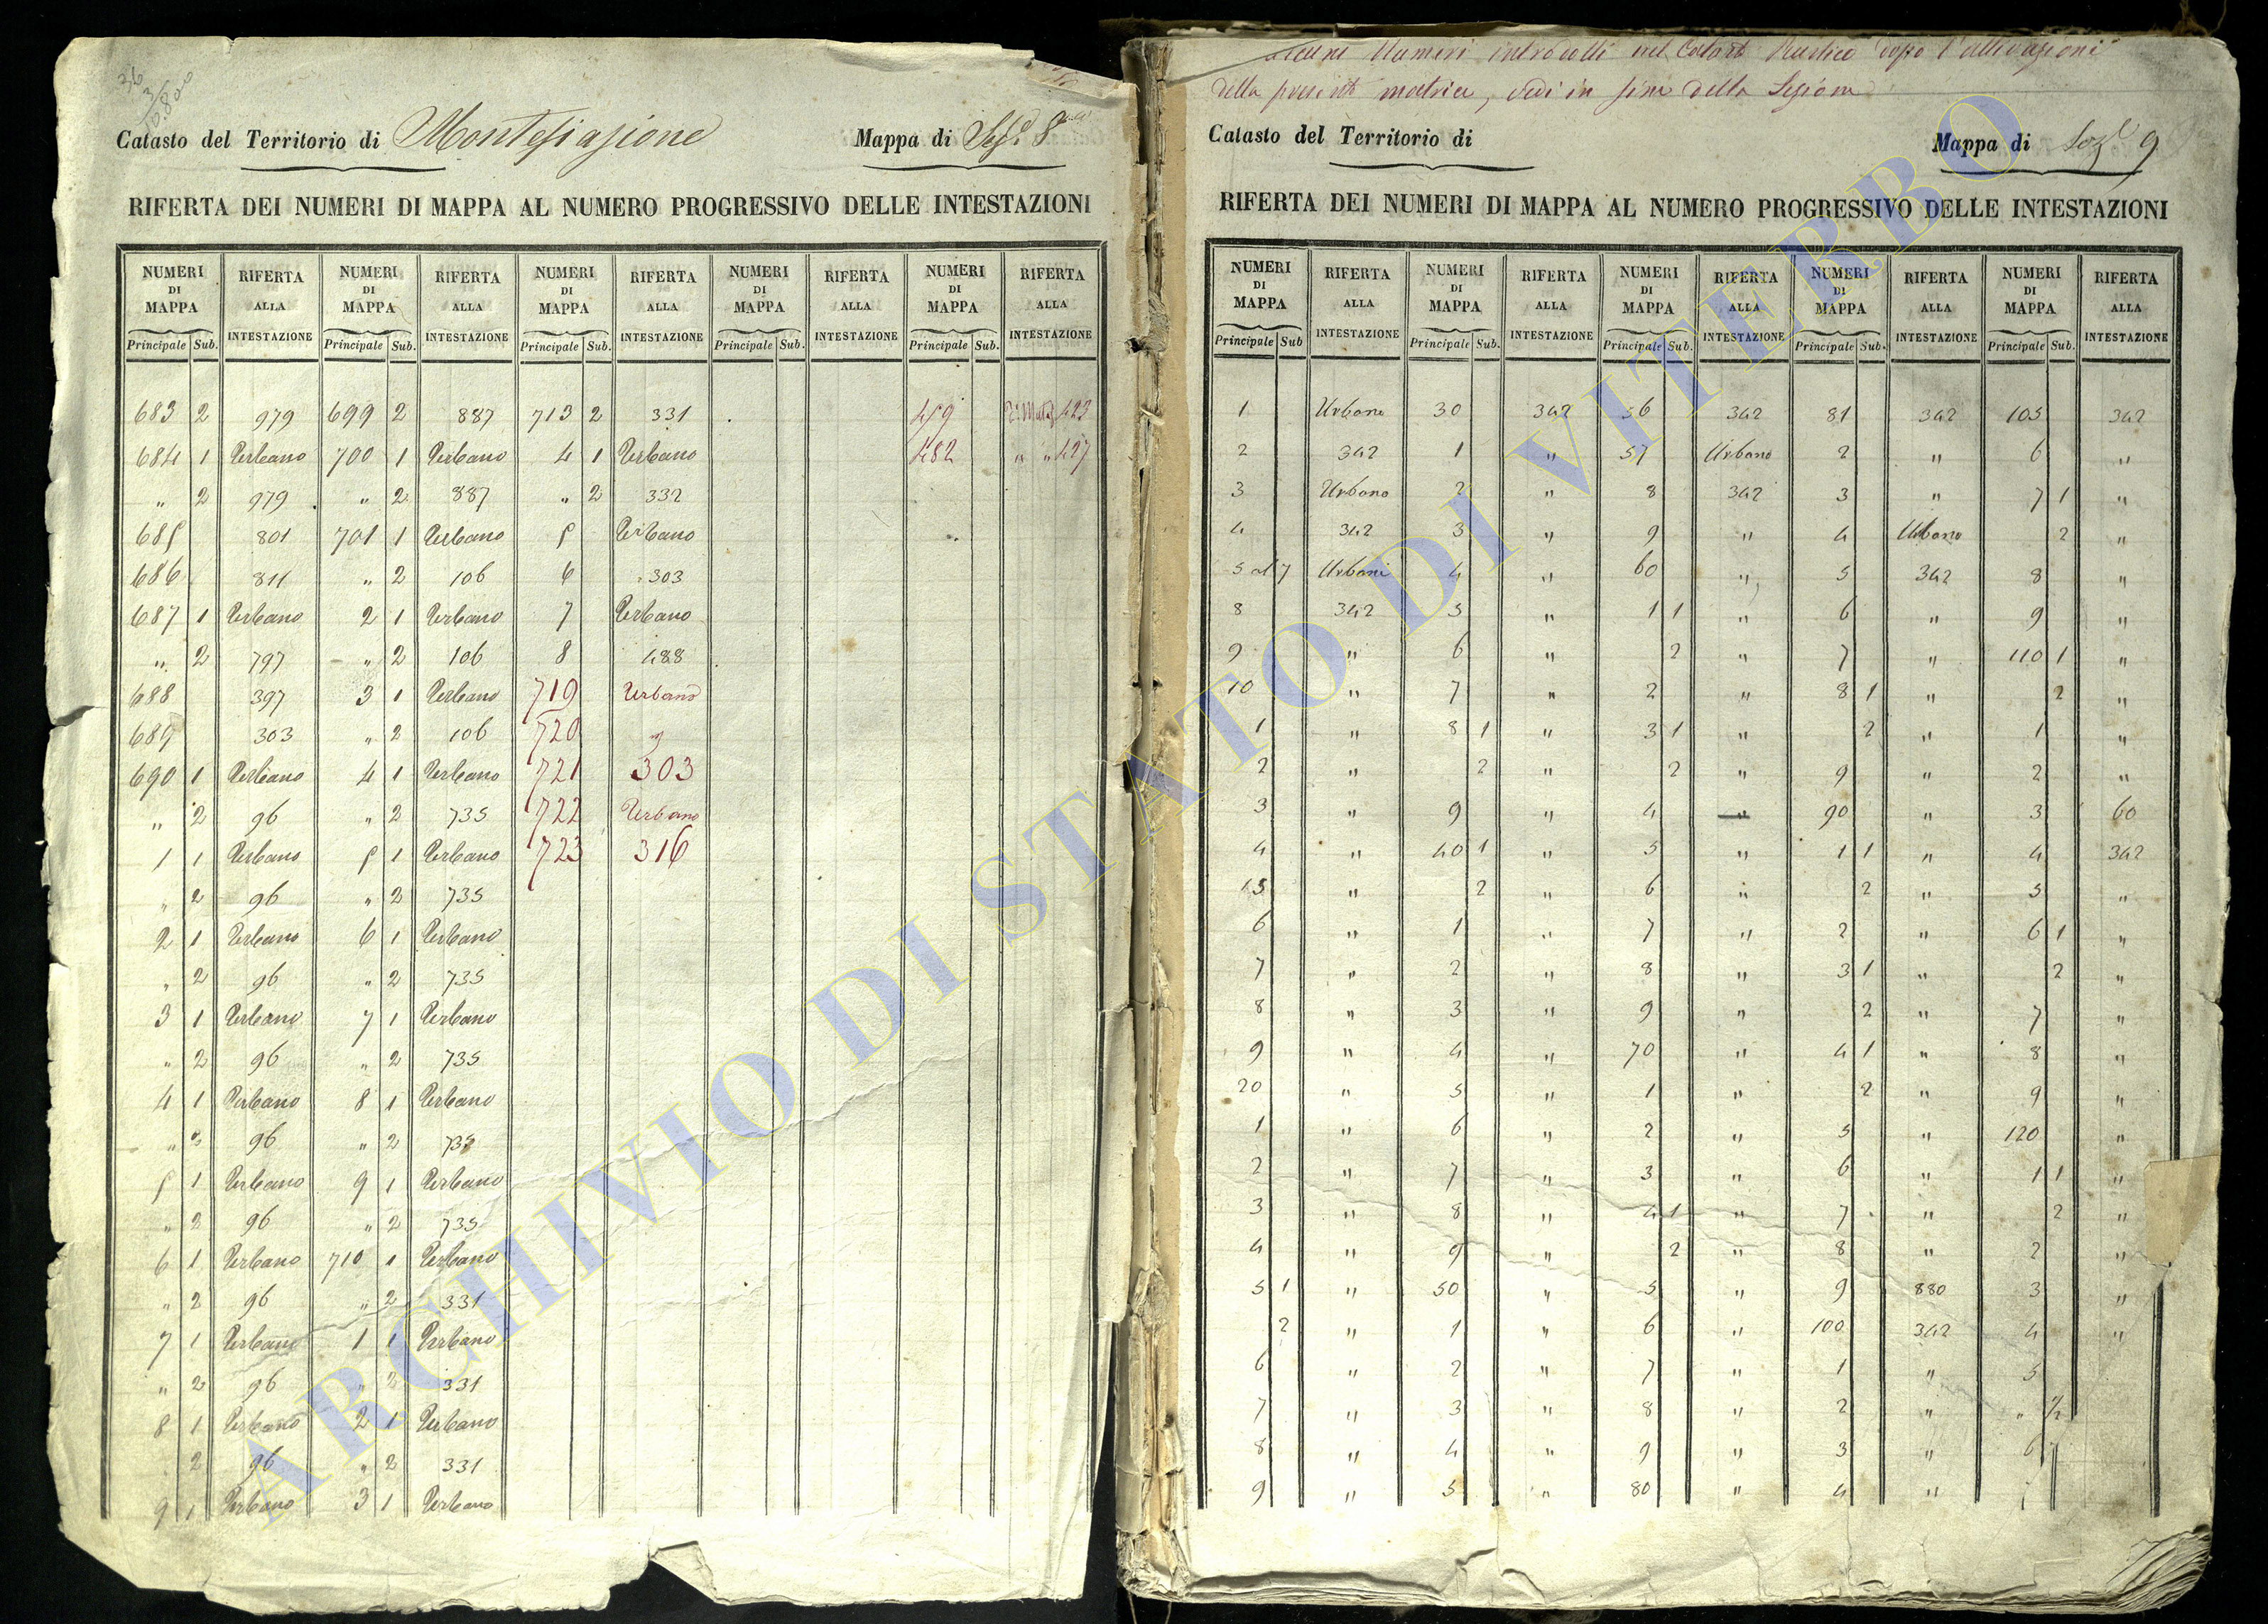 36
3
10.800
Catasto del Territorio di Montefiascone Mappa di Sez. 8
RIFERTA DEI NUMERI DI MAPPA AL NUMERO PROGRESSIVO DELLE INTESTAZIONI
NUMERI DI MAPPA RIFERTA ALLA INTESTAZIONE NUMERI DI MAPPA RIFERTA ALLA INTESTAZIONE NUMERI DI MAPPA RIFERTA ALLA INTESTAZIONE NUMERI DI MAPPA RIFERTA ALLA INTESTAZIONE NUMERI DI MAPPA RIFERTA ALLA INTESTAZIONE
Principale Sub. Principale Sub. Principale Sub. Principale Sub. Principale Sub.
683 2 979 699 2 887 713 2 331 459 423
684 1 Urbano 700 1 Urbano 4 1 Urbano 482 " " 427
" 2 979 " 2 887 " 2 332
685 801 701 1 Urbano 5 Urbano
686 811 " 2 106 6 303
687 1 Urbano 2 1 Urbano 7 Urbano
" 2 797 " 2 106 8 488
688 397 3 1 Urbano 719 Urbano
689 303 " 2 106 720 "
690 1 Urbano 4 1 Urbano 721 303
" 2 96 " 2 735 722 Urbano
1 1 Urbano 5 1 Urbano 723 316
" 2 96 " 2 735
2 1 Urbano 6 1 Urbano
" 2 96 " 2 735
3 1 Urbano 7 1 Urbano
" 2 96 " 2 735
4 1 Urbano 8 1 Urbano
" 2 96 " 2 735
5 1 Urbano 9 1 Urbano
" 2 96 " 2 735
6 1 Urbano 710 1 Urbano
" 2 96 " 2 331
7 1 Urbano 1 1 Urbano
" 2 96 " 2 331
8 1 Urbano 2 1 Urbano
2 96 " 2 331
9 1 Urbano 3 1 Urbano
Alcuni Numeri introdotti nel Catasto Rustico dopo l'attivazione
della presente matrice, vedi in fine della Sezione
Catasto del Territorio di Mappa di Sez. 9
RIFERTA DEI NUMERI DI MAPPA AL NUMERO PROGRESSIVO DELLE INTESTAZIONI
NUMERI DI MAPPA RIFERTA ALLA INTESTAZIONE NUMERI DI MAPPA RIFERTA ALLA INTESTAZIONE NUMERI DI MAPPA RIFERTA ALLA INTESTAZIONE NUMERI DI MAPPA RIFERTA ALLA INTESTAZIONE NUMERI DI MAPPA RIFERTA ALLA INTESTAZIONE
Principale Sub Principale Sub. Principale Sub. Principale Sub. Principale Sub.
1 Urbano 30 342 56 342 81 342 105 342
2 342 1 " 57 Urbano 2 " 6 "
3 Urbano 2 " 8 342 3 " 7 1 "
4 342 3 " 9 " 4 Urbano 2 "
5 al 7 Urbani 4 " 60 " 5 342 8 "
8 342 5 " 1 1 " 6 " 9 "
9 " 6 " 2 " 7 " 110 1 "
10 " 7 " 2 " 8 1 " 2 "
1 " 8 1 " 3 1 " 2 " 1 "
2 " 2 " 2 " 9 " 2 "
3 " 9 " 4 " 90 " 3 60
4 " 40 1 " 5 " 1 1 " 4 342
15 " 2 " 6 " 2 " 5 "
6 " 1 " 7 " 2 " 6 1 "
7 " 2 " 8 " 3 1 " 2 "
8 " 3 " 9 " 2 " 7 "
9 " 4 " 70 " 4 1 " 8 "
20 " 5 " 1 " 2 " 9 "
1 " 6 " 2 " 5 " 120 "
2 " 7 " 3 " 6 " 1 1 "
3 " 8 " 4 1 " 7 " 2 "
4 " 9 " 2 " 8 " 2 "
5 1 " 50 " 5 " 9 880 3 "
2 " 1 " 6 " 100 342 4 "
6 " 2 " 7 " 1 " 5
7 " 3 " 8 " 2 " " 1/2
8 " 4 " 9 " 3 " 6
9 " 5 " 80 " 4 "
ARCHIVIO DI STATO DI VITERBO